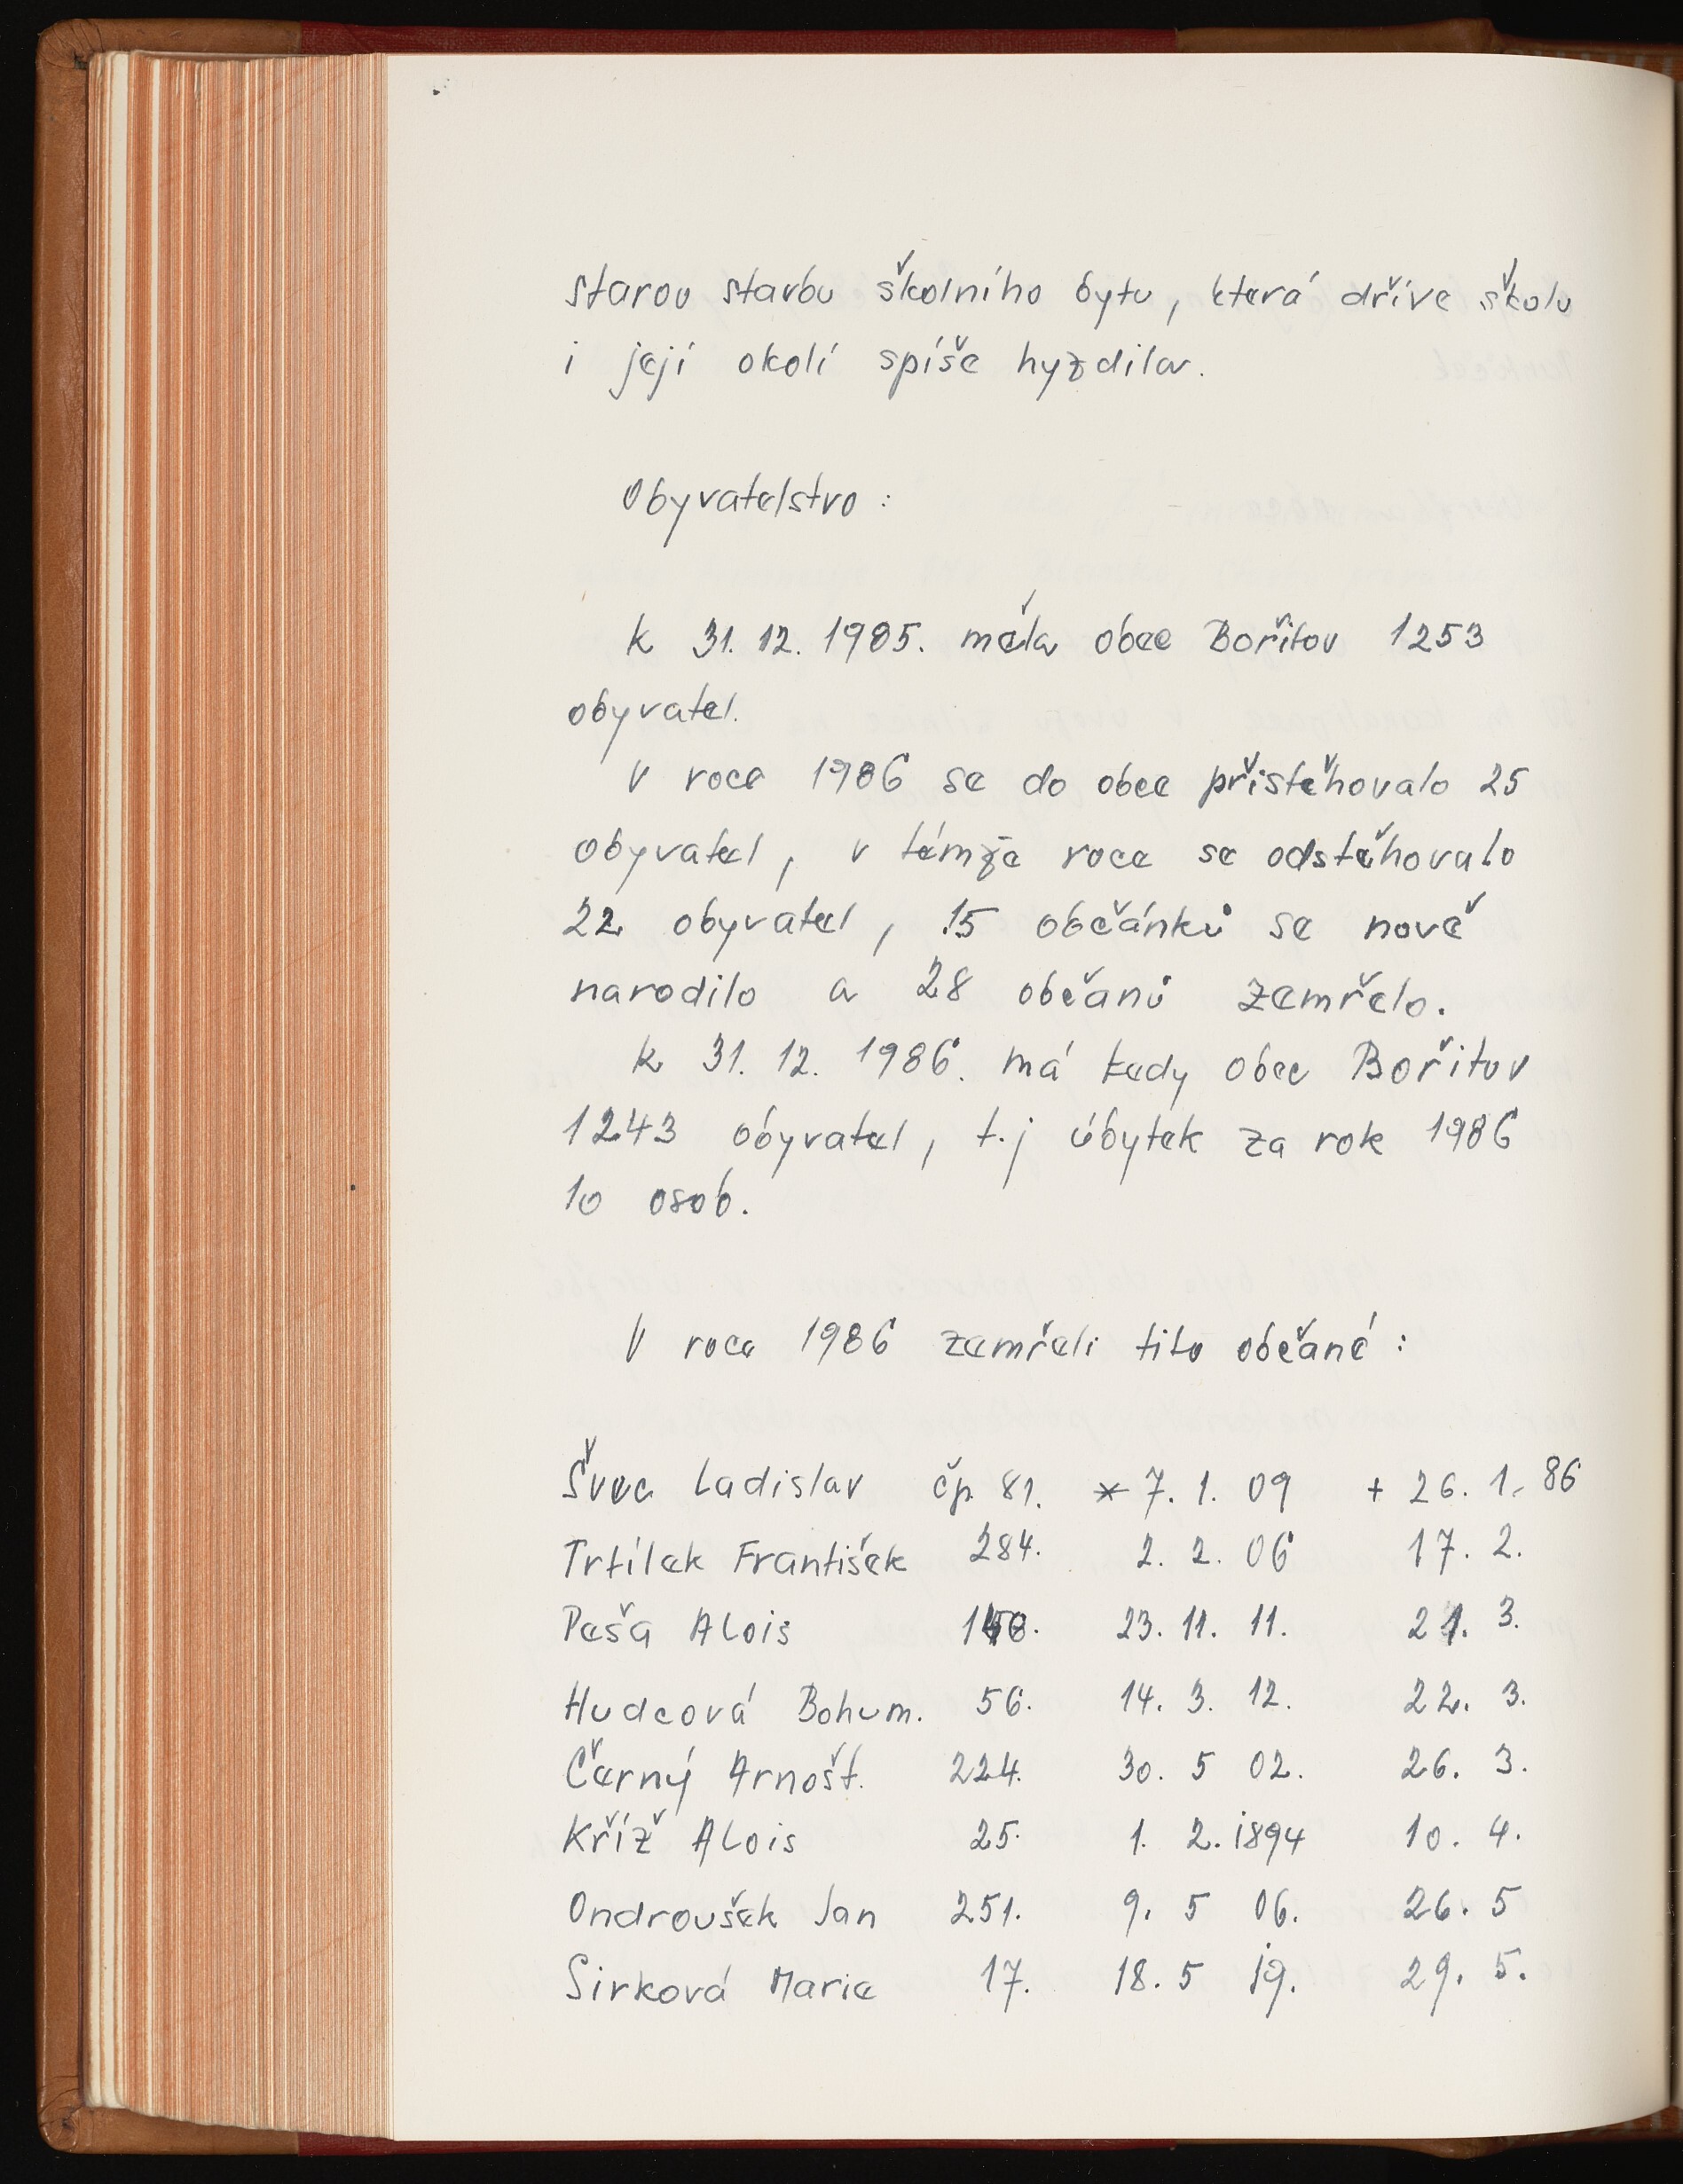 starou stavbu školního bytu, která dříve školu
i její okolí spíše hyzdila.
Obyvatelstvo :
k 31. 12. 1985. měla obec Bořitov 1253
obyvatel.
V roce 1986 se do obce přistěhovalo 25
obyvatel, v témže roce se odstěhovalo
22 obyvatel, 15 občánků se nově
narodilo a 28 občanů zemřelo.
k 31. 12. 1986. má tedy obec Bořitov
1243 obyvatel, t.j úbytek za rok 1986
10 osob.
V roce 1986 zemřeli tito občané :
Švec Ladislav čp. 81. * 7. 1. 09 + 26. 1. 86
Trtílek František 284. 2. 2. 06 17. 2.
Peša Alois 23. 11. 11. 21. 3.
Hudcová Bohum. 56. 14. 3. 12. 22. 3.
Černý Arnošt. 224. 30. 5 02. 26. 3.
Kříž Alois 25. 1. 2. 1894 10. 4.
Ondroušek Jan 251. 9. 5 06. 26. 5
Sirková Marie 17. 18. 5 19. 29. 5.